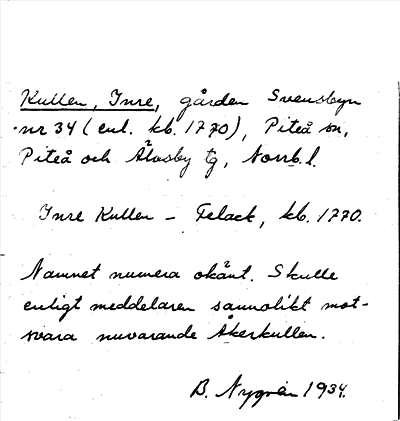 Kullen, Inre, gården Svensbyn
nr 34 (enl. kb. 1770), Piteå sn,
Piteå och Älvsby tg, Norrb. l.
Inre Kullen – Felack, kb. 1770.
Namnet numera okänt. Skulle
enligt meddelaren sannolikt mot-
svara nuvarande Åkerkullen.
B. Nygren 1934.